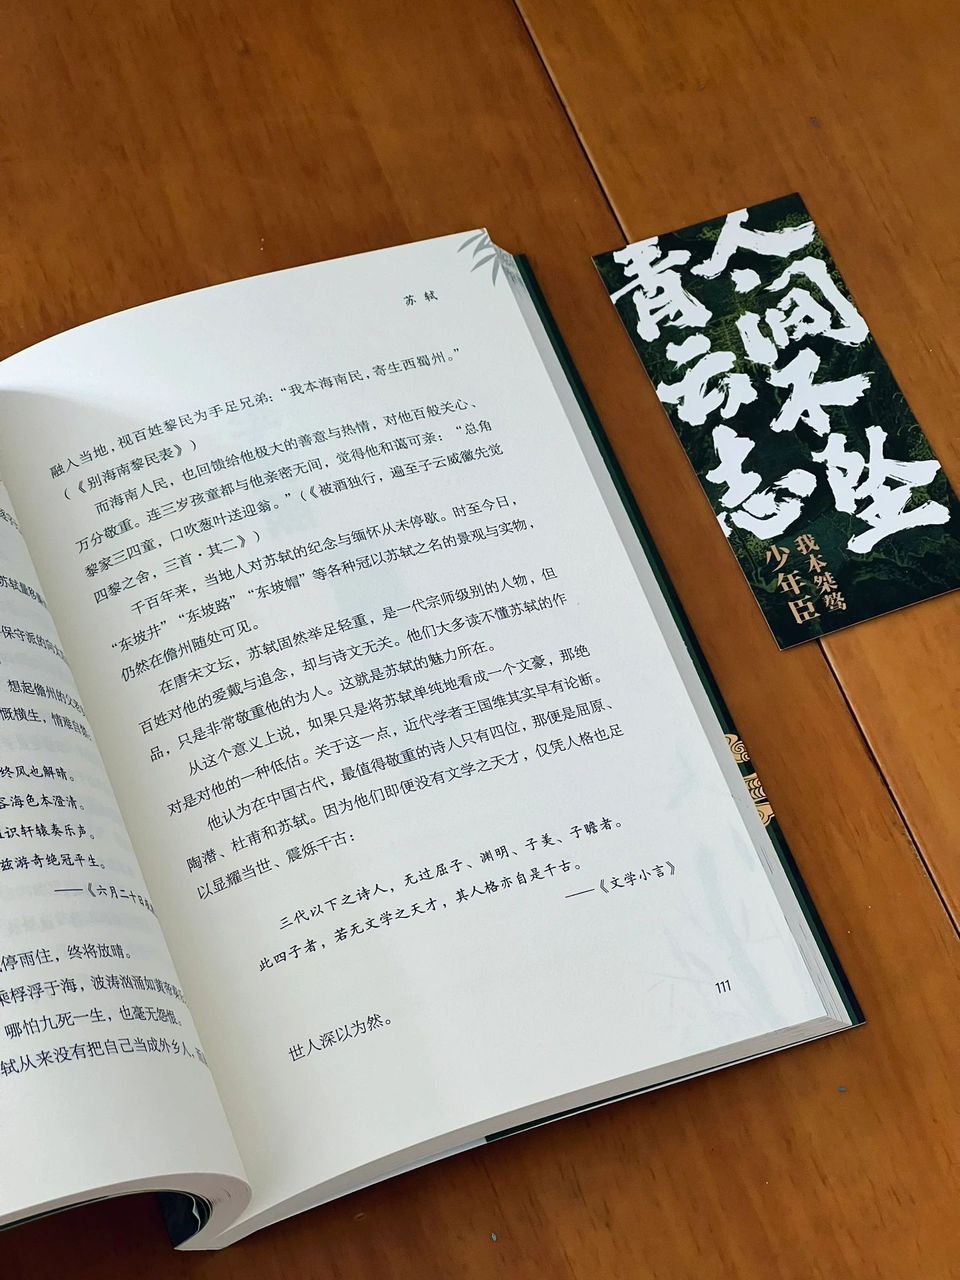 苏轼量移廉
保守派的向太
想起儋州的父老
慨横生，情难自禁
终风也解晴。
容海色本澄清。
识轩辕奏乐声。
兹游奇绝冠平生。
——《六月二十日夜
停雨住，终将放晴。
乘桴浮于海，波涛汹涌如黄帝奏
哪怕九死一生，也毫无怨恨。
轼从来没有把自己当成外乡人，而
苏 轼
融入当地，视百姓黎民为手足兄弟：“我本海南民，寄生西蜀州。”
（《别海南黎民表》）
而海南人民，也回馈给他极大的善意与热情，对他百般关心、
万分敬重。连三岁孩童都与他亲密无间，觉得他和蔼可亲：“总角
黎家三四童，口吹葱叶送迎翁。”（《被酒独行，遍至子云威徽先觉
四黎之舍，三首·其二》）
千百年来，当地人对苏轼的纪念与缅怀从未停歇。时至今日，
“东坡井”“东坡路”“东坡帽”等各种冠以苏轼之名的景观与实物，
仍然在儋州随处可见。
在唐宋文坛，苏轼固然举足轻重，是一代宗师级别的人物，但
百姓对他的爱戴与追念，却与诗文无关。他们大多读不懂苏轼的作
品，只是非常敬重他的为人。这就是苏轼的魅力所在。
从这个意义上说，如果只是将苏轼单纯地看成一个文豪，那绝
对是对他的一种低估。关于这一点，近代学者王国维其实早有论断。
他认为在中国古代，最值得敬重的诗人只有四位，那便是屈原、
陶潜、杜甫和苏轼。因为他们即便没有文学之天才，仅凭人格也足
以显耀当世、震烁千古：
三代以下之诗人，无过屈子、渊明、子美、子瞻者。
此四子者，若无文学之天才，其人格亦自是千古。
——《文学小言》
世人深以为然。
111
人间不坠
青云志
我本桀骜
少年臣